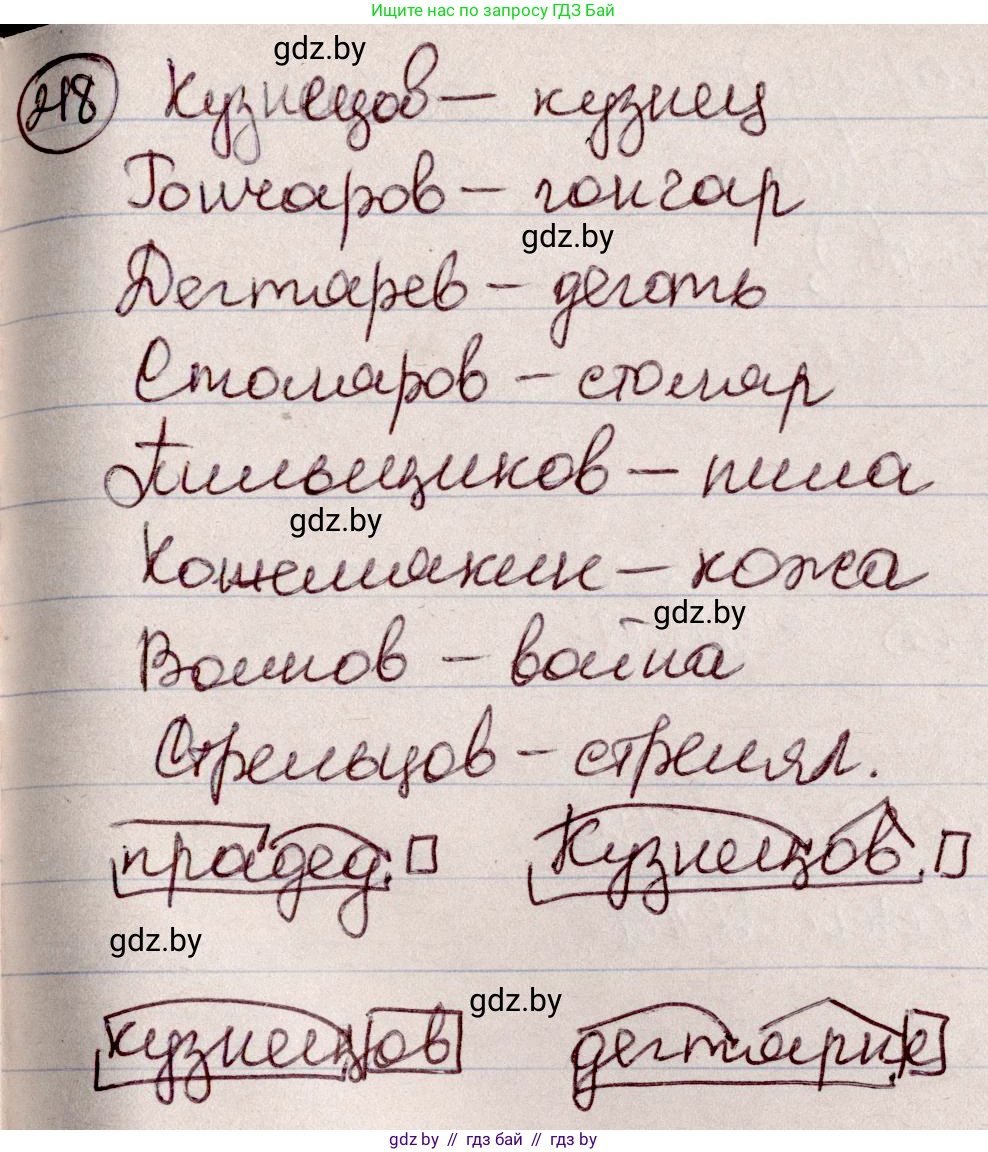 Ищите нас по запросу ГДЗ Бай
gdz.by
218 Кузнецов — кузнец
Гончаров — гончар
gdz.by
Дегтярев — деготь
Столяров — столяр
Пильщиков — пила
gdz.by
Кожемякин — кожа
gdz.by
Воинов — война
Стрельцов — стрелял.
прадед Кузнецов
gdz.by
gdz.by
кузнецов дегтярне
gdz by // гдз бай // гдз by